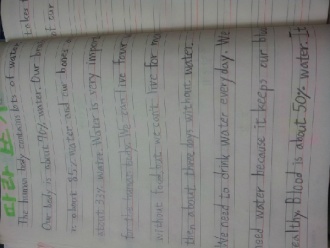 따라 쓰기
The human body contains lots of water.
Our body is about 70% water. Our brai
is about 85% water and our bones
about water. Water is very impor
for the human body. We can live four w
without food but we can't live for mo
then about three days without water.
We need to drink water every day. We
eed water because it keeps our bl
ealthy Blood is about 50% water. It
takes
of our